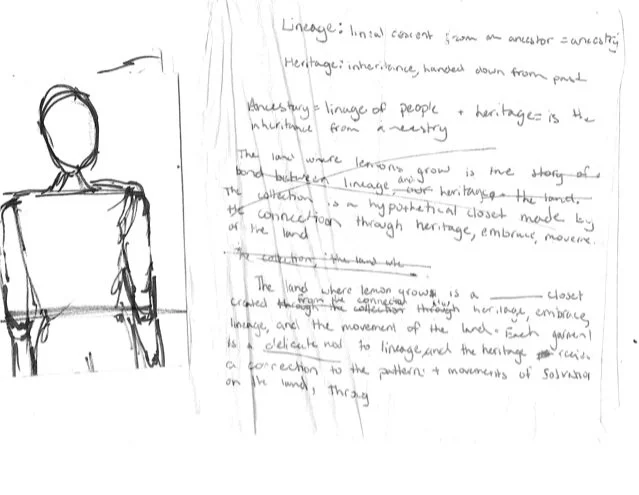 Lineage: linial descent from an ancestor = ancestry
Heritage: inheritance, handed down from past
Ancestary = linage of people + heritage = is the
inheritance from ancestry
The land where lemons grow is the story of
bond between lineage, and our heritage the land.
The collection is a hypothetical closet made by
the connection through heritage, embrace, moveme
of the land
The collection, the land whe
The land where lemon grows is a ______ closet
created through the collection through heritage, embrace,
from the connection
lineage, and the movement of the land. Each garment
is a delicate nod to lineage, and the heritage
a connection to the pattern + movements of
on the land, throug